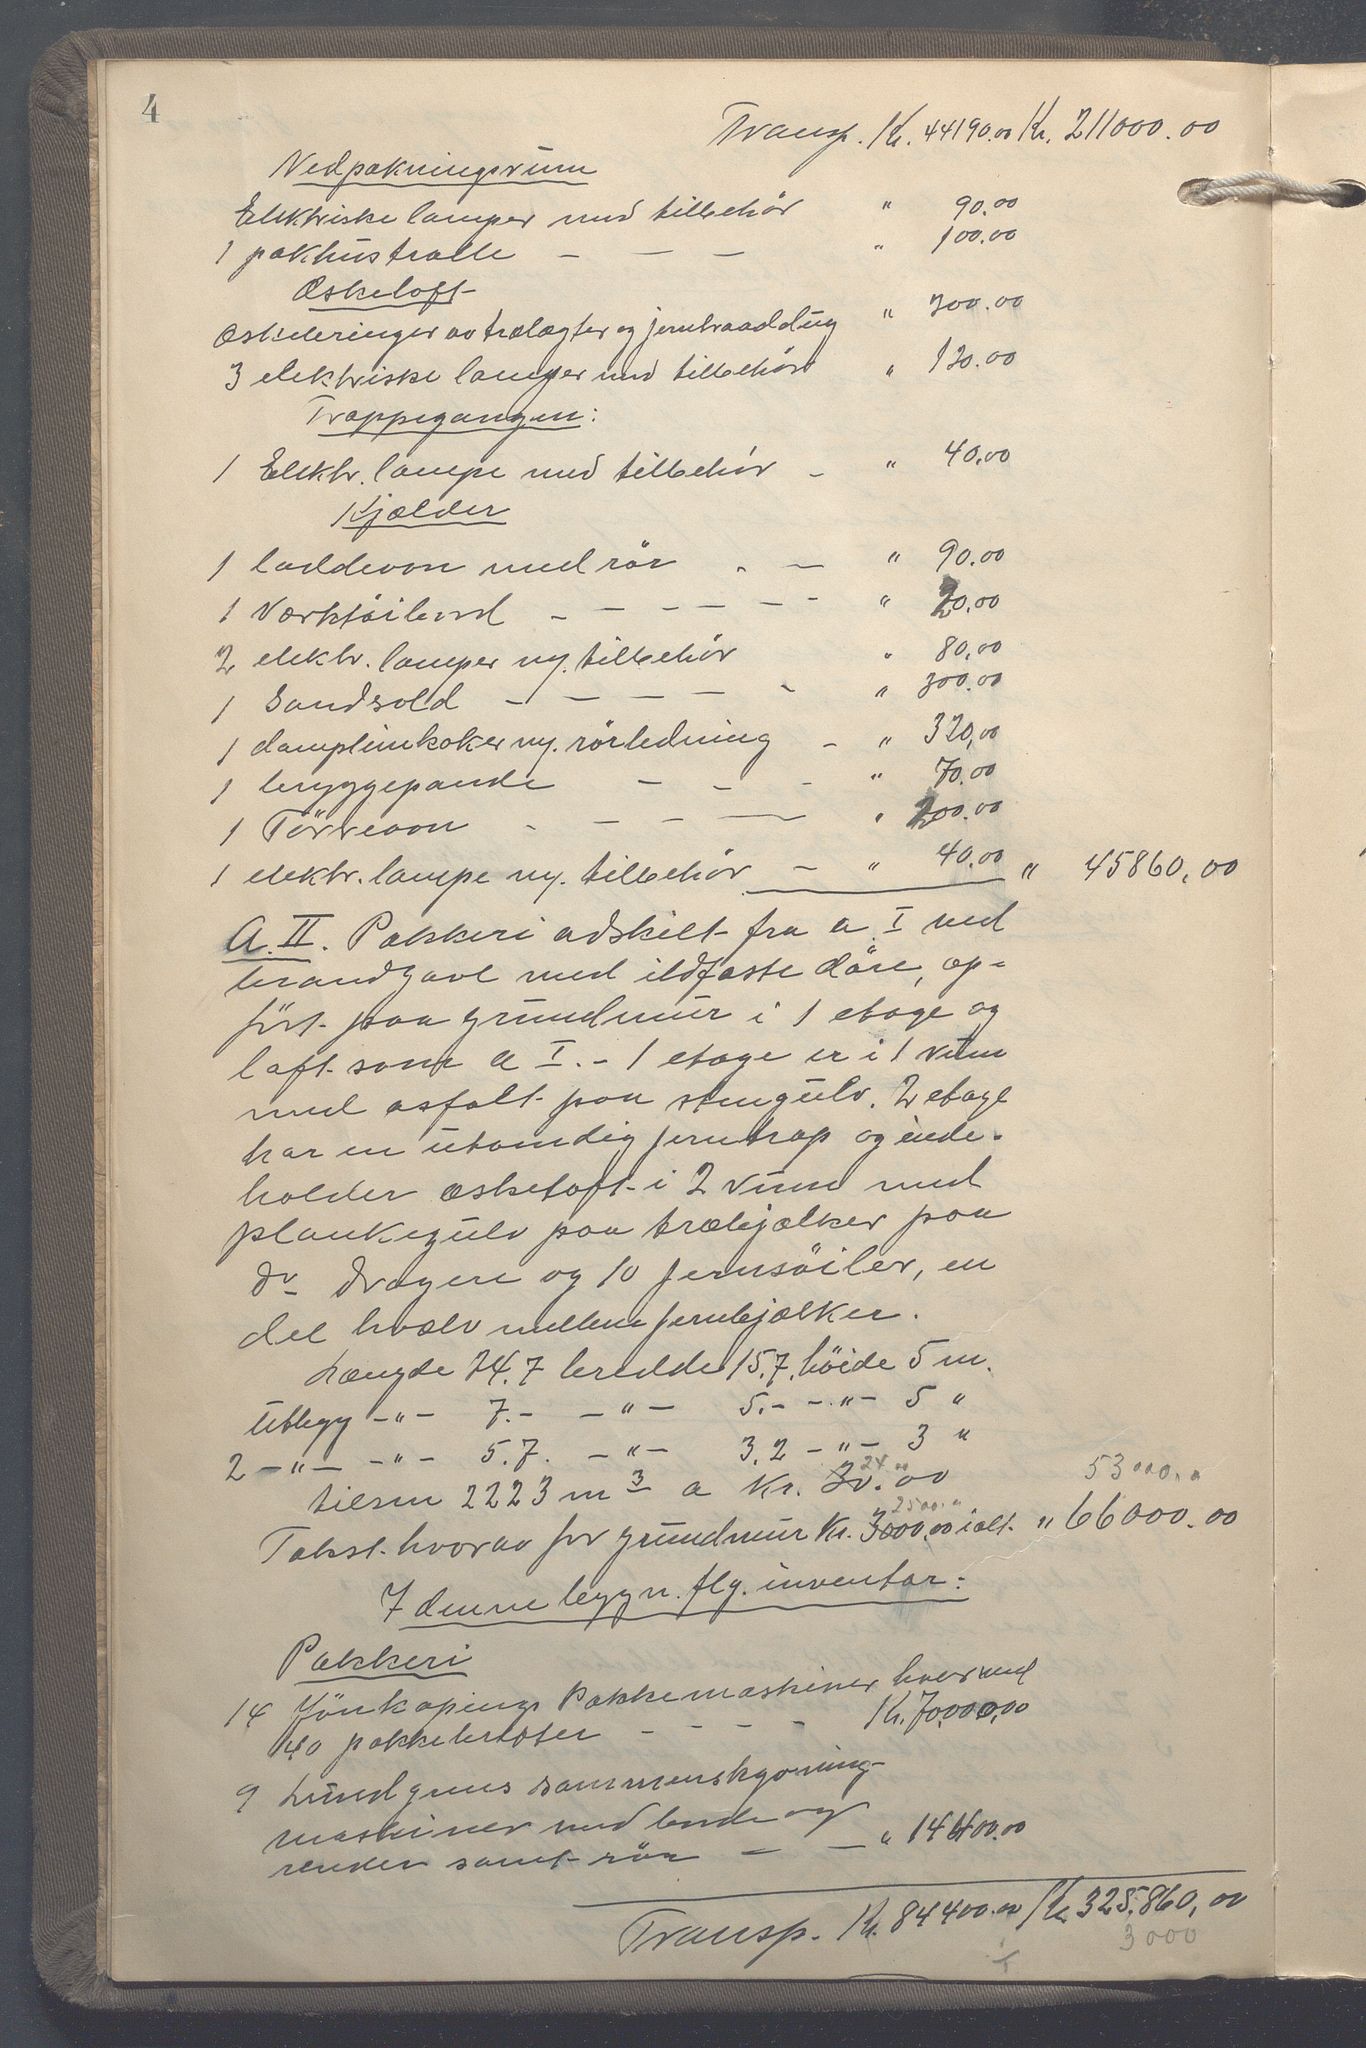 4
Transp. Kr. 44190.00 Kr. 211000.00
Nedpakningsrum
Elektriske lamper med tilbehör " 90.00
1 pakhustralle — — — " 100.00
Æskeloft
Æskebringer av trælægter og jerntraaddug " 300.00
3 elektriske lamper med tilbehör " 120.00
Trappegangen:
1 Elektr. lampe med tilbehör - " 40.00
Kjælder
1 loddeovn med rör - — " 90.00
1 Værktöibord - — — — — - " 20.00
2 elektr. lamper m. tilbehör " 80.00
1 Sandsold — — — — - " 300.00
1 damplimkoker m. rörledning - " 320,00
1 bryggepande — - - " 70.00
1 Törreovn - — — — " 200.00
1 elektr. lampe m. tilbehör — " 40.00 " 45860,00
A. II. Pakkeri adskilt fra A I ved
brandgavl med ildfaste döre, op-
fört paa grundmur i 1 etage og
loft som A I. - 1 etage er i 1 rum
med asfalt paa stengulv. 2 etage
har en utvendig jerntrap og inde-
holder æskeloft i 2 rum med
plankegulv paa træbjælker paa
do dragere og 10 jernsöiler, en
del hvælv mellem jernbjælker.
Længde 24.7 bredde 15.7. höide 5 m.
Utbygg -"- 7.- -"- 5.- -"- 5 "
2 -"- -"- 5.7. -"- 3,2 -"- 3 "
24.00
tilsm 2223 m3 a Kr. 30.00 53000.0
2500.0
Takst hvorav for grundmur Kr. 3000.00 ialt " 66000.00
I denne bygn. flg. inventar:
Pakkeri
14 Jönköpings Pakkemaskiner hver med
40 pakkebrötter - - - - Kr. 70,000,00
9 Lundgrens sammenskyvning-
maskiner med borde og
render samt rör — — " 14400.00
Transp. Kr. 84400.00 Kr. 325.860,00
3000